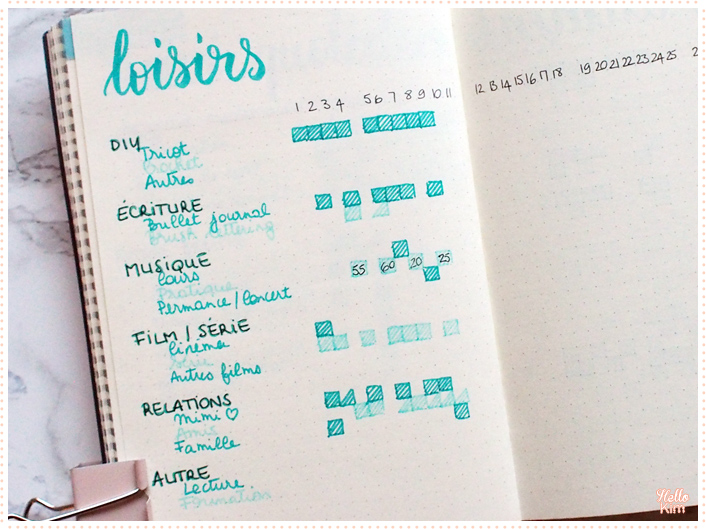 loisirs
1 2 3 4 5 6 7 8 9 10 11 12 13 14 15 16 17 18 19 20 21 22 23 24 25 2
DIY
Tricot
Crochet
Autres
ÉCRITURE
Bullet journal
Brush lettering
MUSIQUE
Cours
Pratique
Permance / Concert
55 60 20 25
FILM / SÉRIE
Cinéma
Série
Autres films
RELATIONS
Mimi ♡
Amis
Famille
AUTRE
Lecture
Formation
Hello Kim